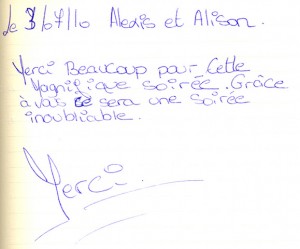 Le 3/07/10 Alexis et Alison.
Merci Beaucoup pour Cette
Magnifique soirée. Grâce
à vous ce sera une soirée
inoubliable.
Merci.